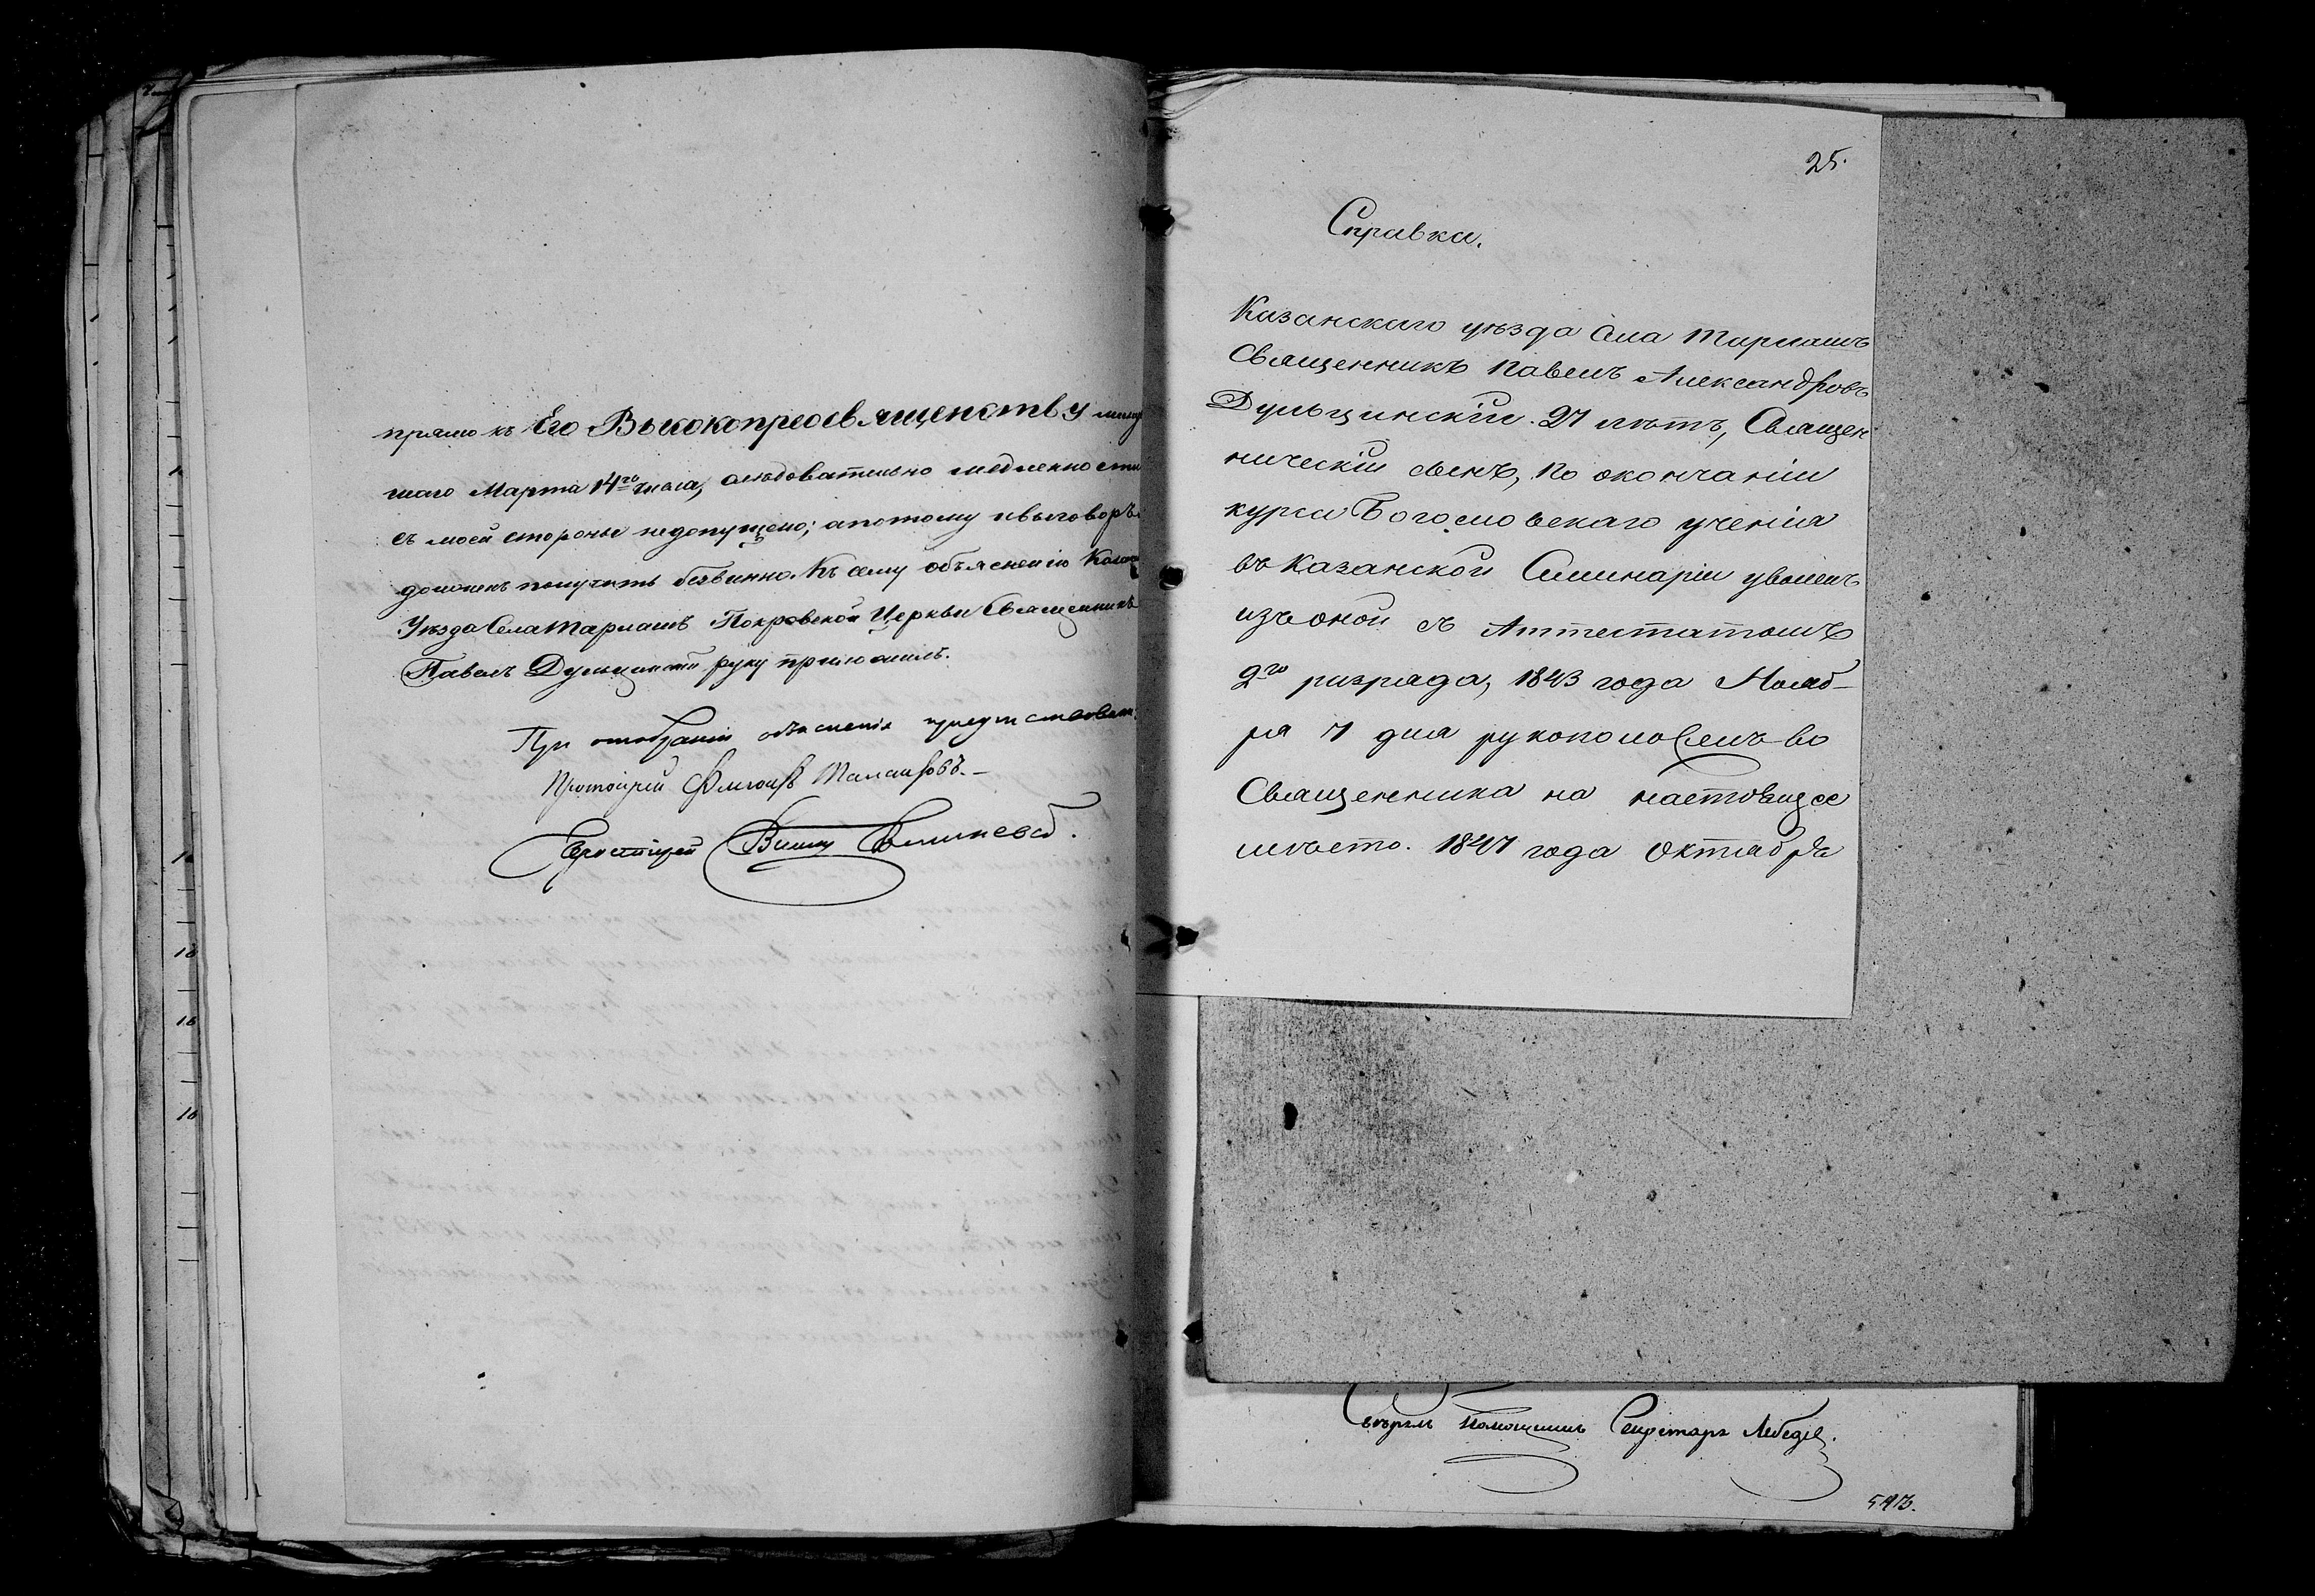 прямо къ Его Высокопреосвященству мину
шаго Марта 14го числа, следовательно медленности
съ моей стороны недопущено; а потому и выговоръ
долженъ получить безвинно. Къ сему объясненію Казан
Уѣзда Села Тарлашъ Покровской Церкви Священникъ
Павелъ Дульцинскій руку приложилъ.
При отобраніи объясненія присутствовали
Протоіерей
Протоіерей
25.
Справка.
Казанскаго уѣзда Села Тарлашъ
Священникъ Павелъ Александровъ
Дульцинскій. 27 лѣтъ, Священ
ническій сынъ, по окончаніи
курса Богословскаго ученія
въ Казанской Семинаріи уволенъ
изъ оной съ Аттестатомъ
2го разряда, 1843 года Нояб-
ря 7 дня рукоположенъ во
Священника на настоящее
мѣсто. 1847 года Октября
Секретарь Лебедев.